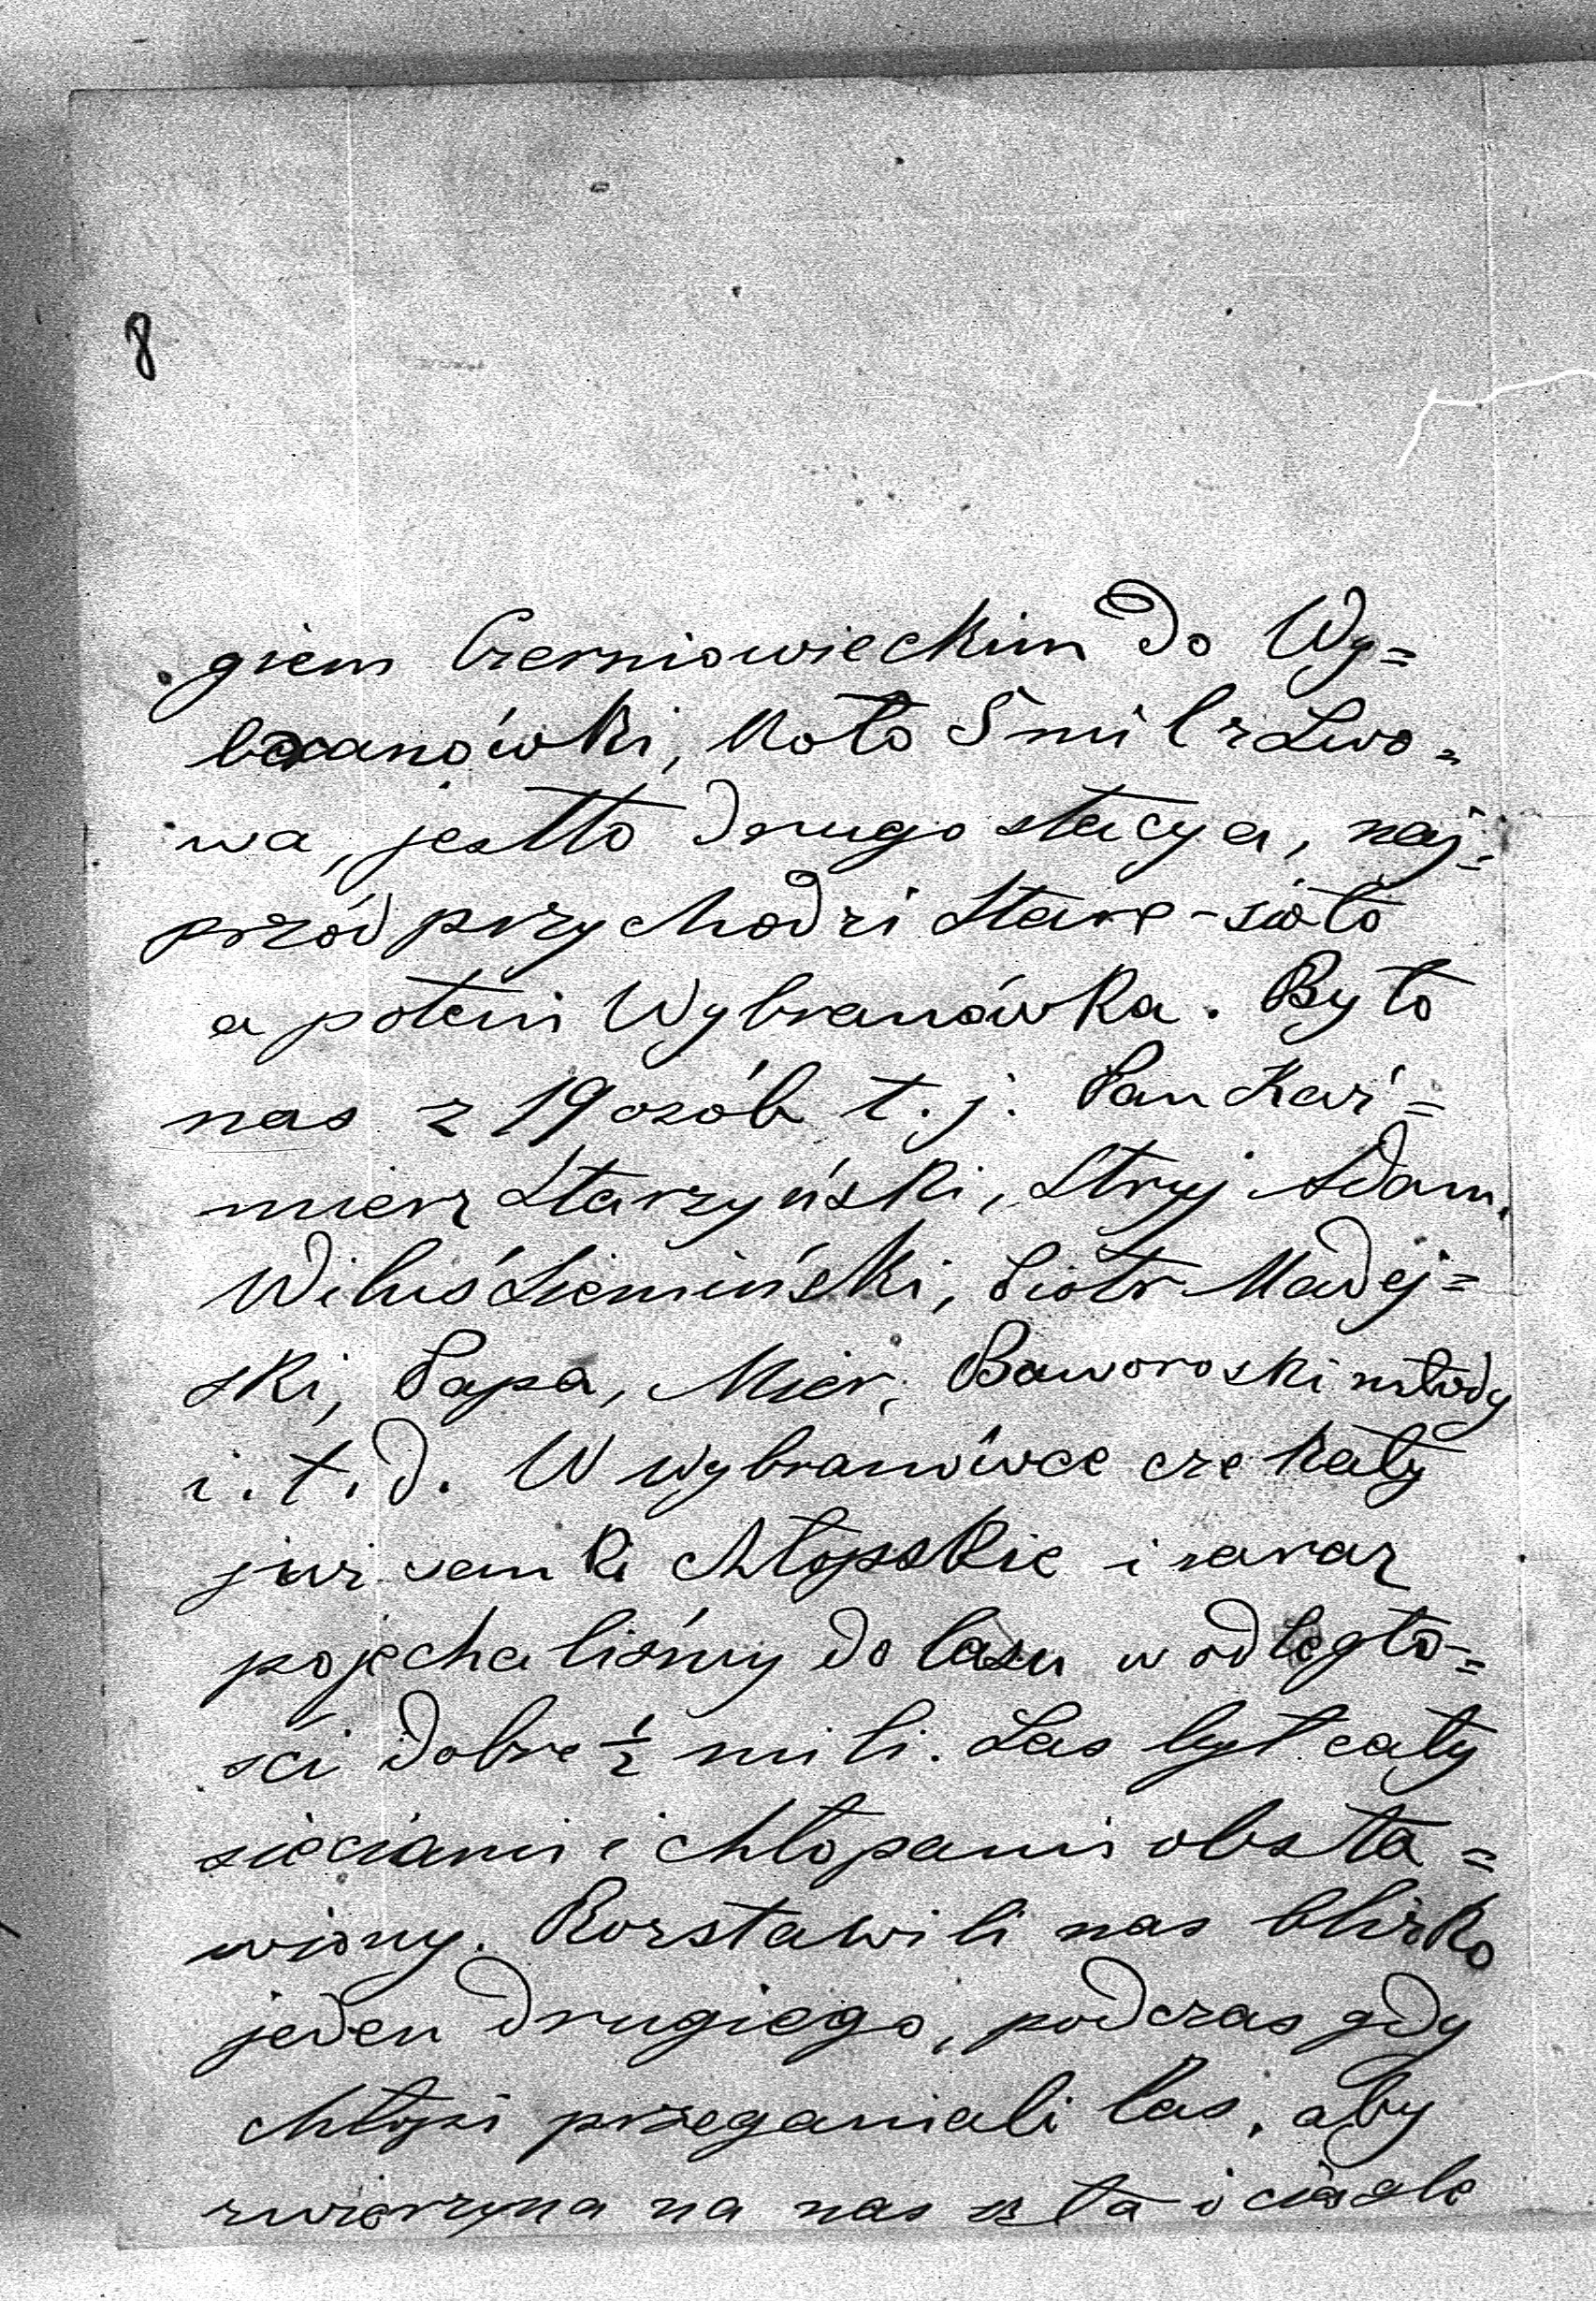 8
giem Czerniowieckim do Wy=
branówki, koło 5 mil z Lwo=
wa, jestto druga stacya, naj=
przód przychodzi Stare-sioło
a potem Wybranówka. Było
nas z 19 osób t. j. Pan Kaź=
mierz Starzyński, Stryj Adam,
Wiluś Siemiński, Piotr Madej=
ski, Papa, Mier, Baworoski młody
i. t. d. W wybranówce czekały
już sanki chłopskie i zaraz
pojechaliśmy do lasu w odległo=
ści dobre ½ mili. Las był cały
sieciami i chłopami obsta=
wiony. Rozstawili nas blizko
jeden drugiego, podczas gdy
chłopi przeganiali las, aby
zwierzyna na nas szła i ciągle